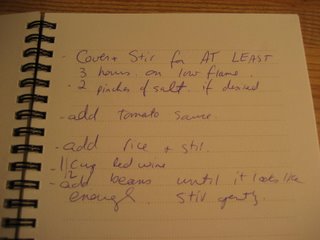 - Cover + Stir for AT LEAST
3 hours on low flame.
- 2 pinches of salt if desired
- add tomato sauce.
- add rice + stir.
- 1/2 cup Red wine
- add beans until it looks like
enough. stir gently.